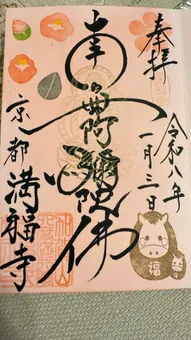 奉拝
令和八年
一月三日
南無阿弥陀佛
京都
満福寺
福